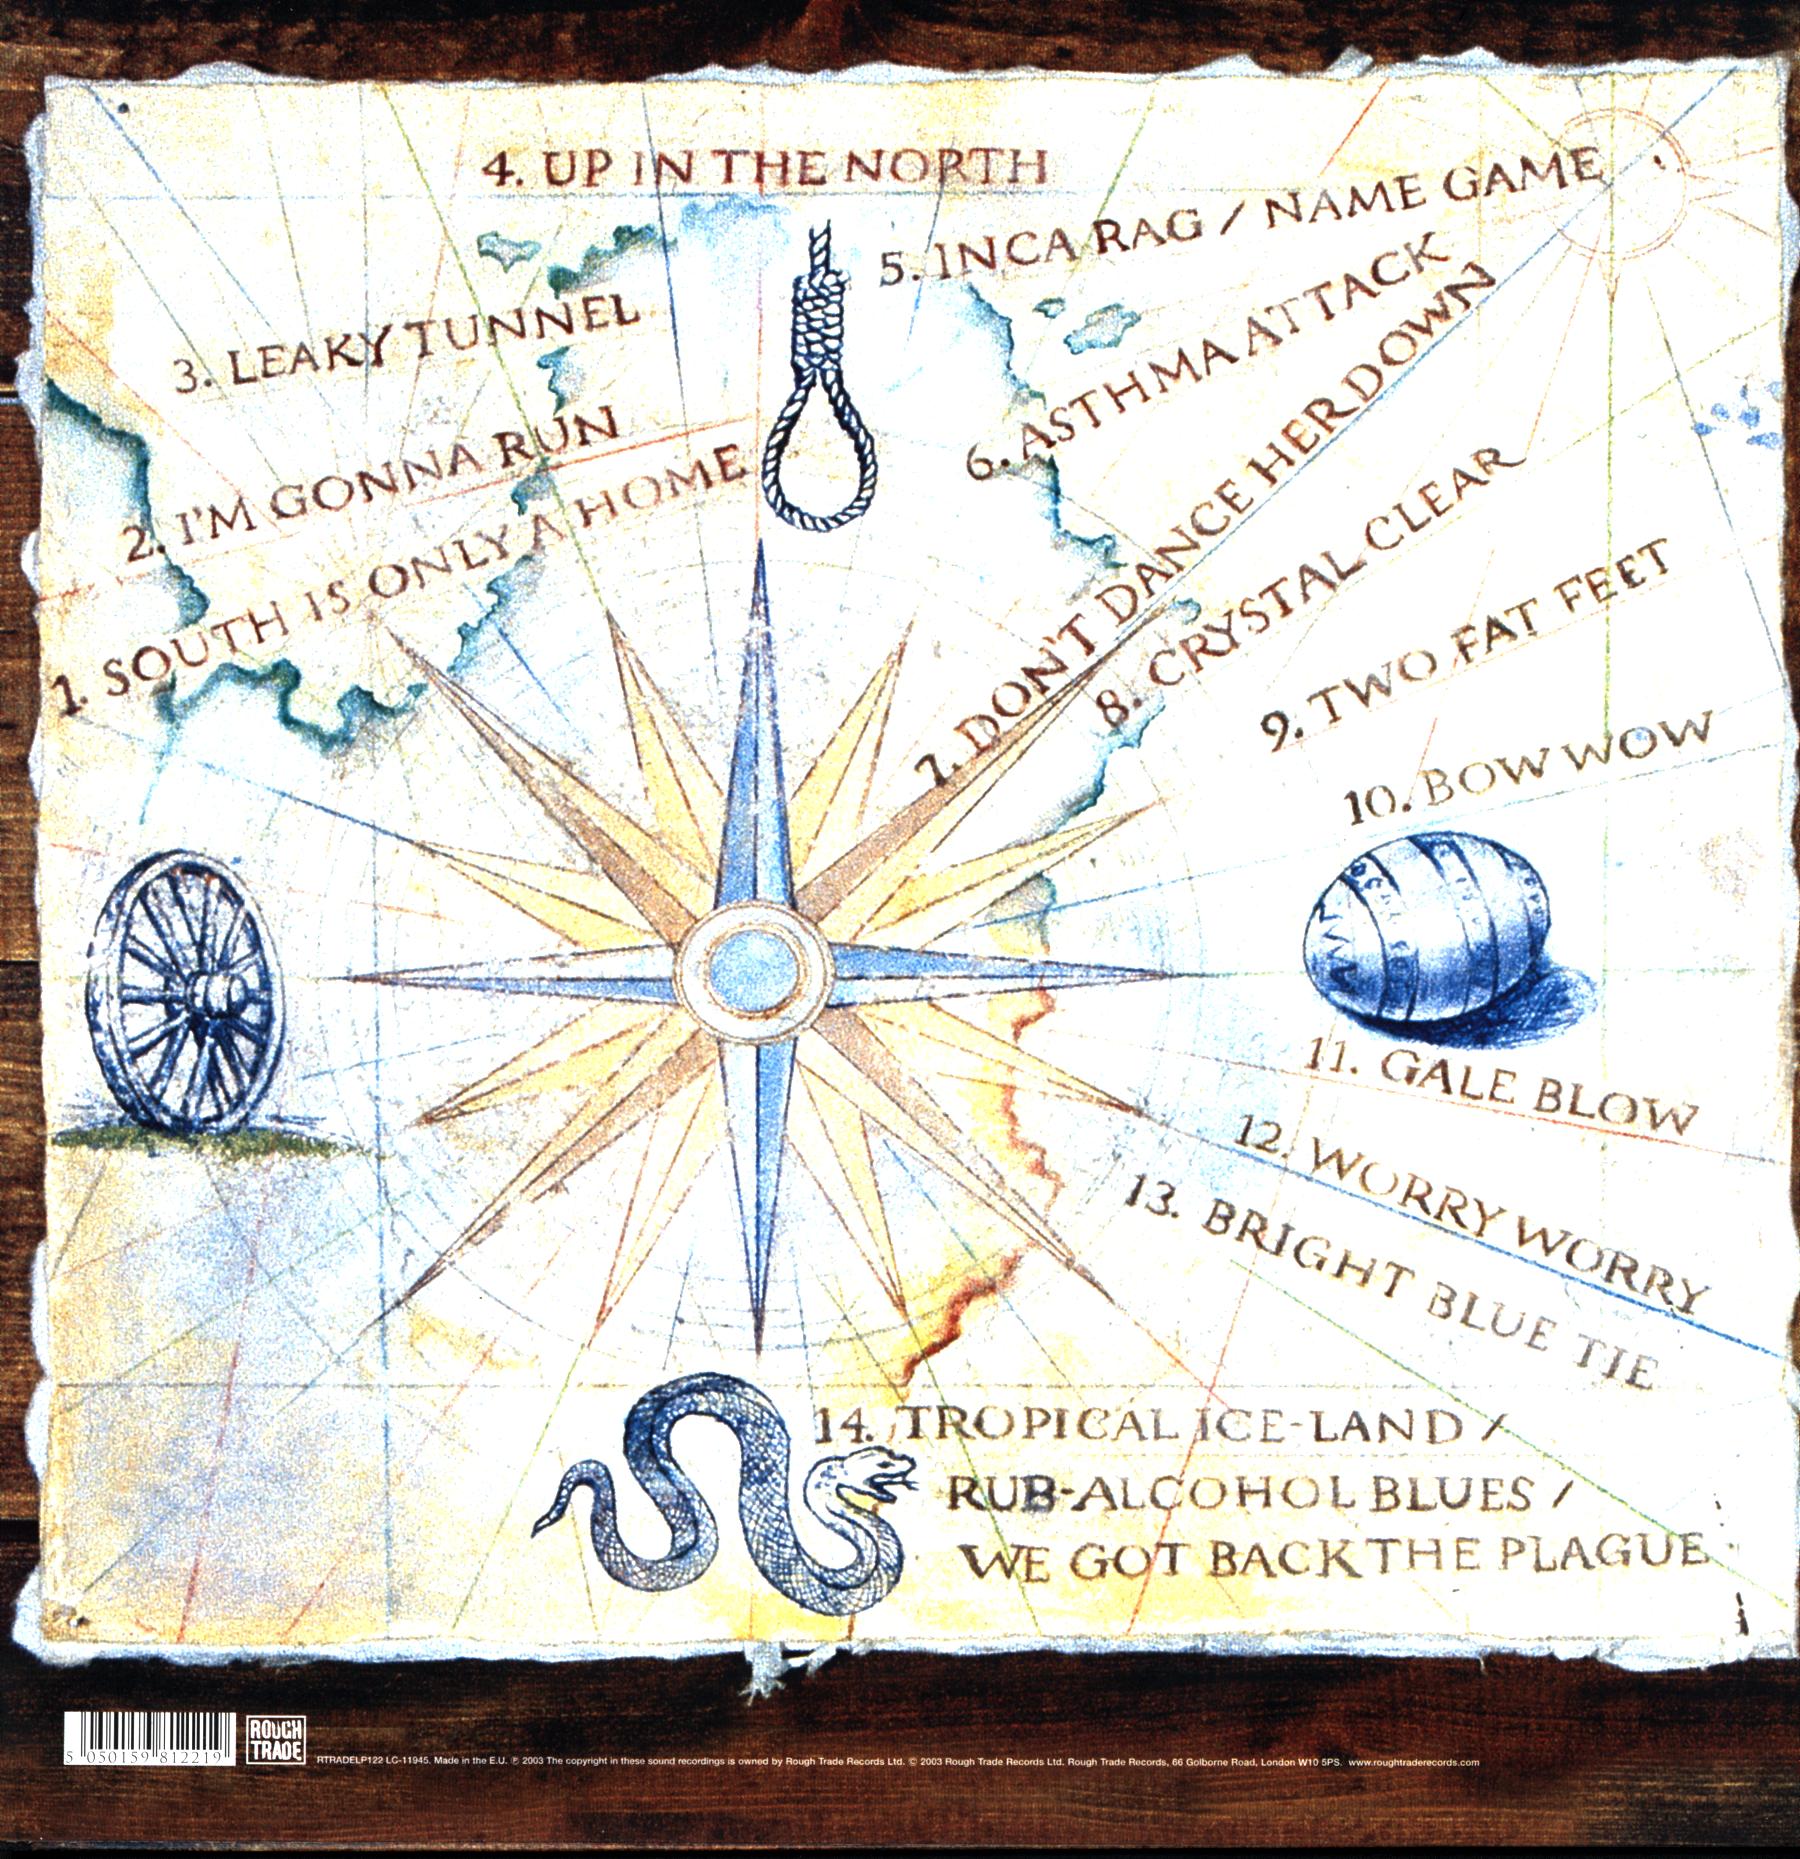 4. UP IN THE NORTH
5. INCA RAG / NAME GAME
3. LEAKY TUNNEL
6. ASTHMA ATTACK
2. I'M GONNA RUN
7. DON'T DANCE HER DOWN
1. SOUTH IS ONLY A HOME
8. CRYSTAL CLEAR
9. TWO FAT FEET
10. BOW WOW
11. GALE BLOW
12. WORRY WORRY
13. BRIGHT BLUE TIE
14. TROPICAL ICE-LAND /
RUB-ALCOHOL BLUES /
WE GOT BACK THE PLAGUE
5 050159 812219
ROUGH
TRADE
RTRADELP122 LC-11945. Made in the E.U. ℗ 2003 The copyright in these sound recordings is owned by Rough Trade Records Ltd. © 2003 Rough Trade Records Ltd. Rough Trade Records, 66 Golborne Road, London W10 5PS. www.roughtraderecords.com